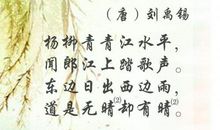 （唐）刘禹锡
杨柳青青江水平，
闻郎江上踏歌声。
东边日出西边雨，
道是无晴⁽²⁾却有晴⁽²⁾。